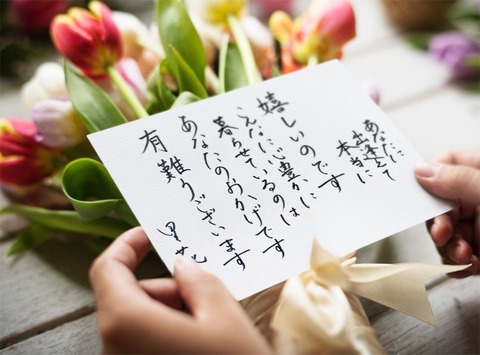 あなたに
出逢えて
本当に
嬉しいのです
こんなに心豊かに
暮らせているのは
あなたのおかげです
有難うございます
里花